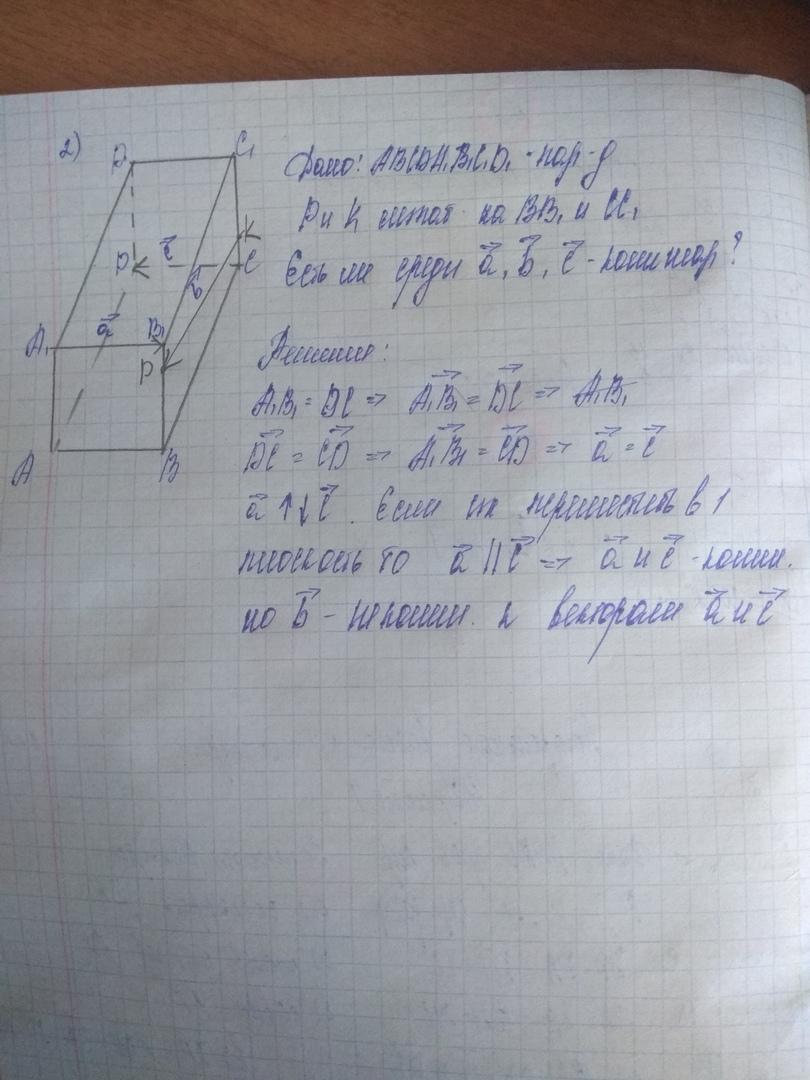 2)
D C₁
K
D c⃗ C
b⃗
a⃗
A₁ B₁
P
A B
Дано: ABCDA₁B₁C₁D₁ - пар-д
P и K лежат на BB₁ и CC₁
Есть ли среди a⃗, b⃗, c⃗ - коллинеар?
Решение:
A₁B₁ = DC => A₁B₁⃗ = DC⃗ => A₁B₁
DC⃗ = CD⃗ => A₁B₁⃗ = CD⃗ => a⃗ = c⃗
a⃗ ↑↓ c⃗. Если их в 1
плоскость то a⃗ || c⃗ => a⃗ и c⃗ - коллин.
но b⃗ - неколлин. к векторам a⃗ и c⃗